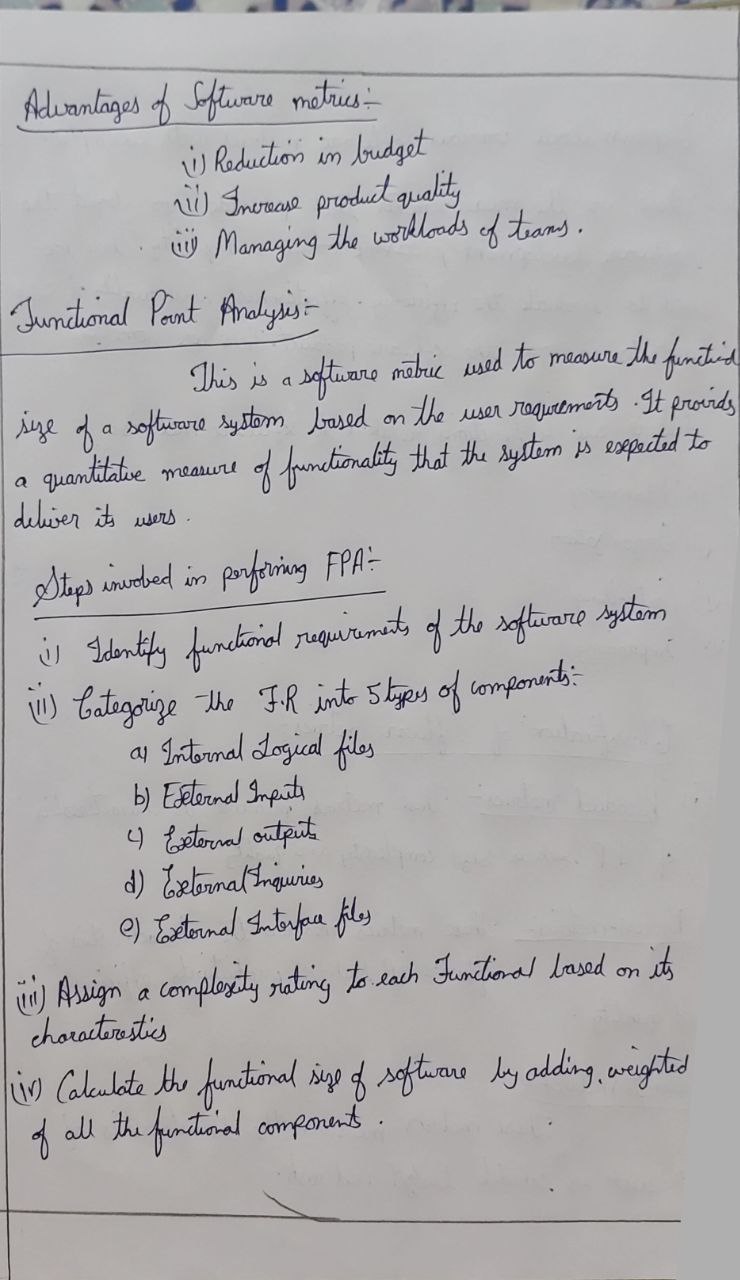 Advantages of Software metrics:-
(i) Reduction in budget
(ii) Increase product quality
(iii) Managing the workloads of teams.
Functional Point Analysis:-
This is a software metric used to measure the functiol
size of a software system based on the user requirements. It provids
a quantitative measure of functionality that the system is expected to
deliver its users.
Steps involved in performing FPA:-
(i) Identify functional requirements of the software system
(ii) Categorize the F.R into 5 types of components:-
a) Internal Logical files
b) External Inputs
c) External outputs
d) External Inquiries
e) External Interface files
(iii) Assign a complexity rating to each Functional based on its
characterestics
(iv) Calculate the functional size of software by adding, weighted
of all the functional components.